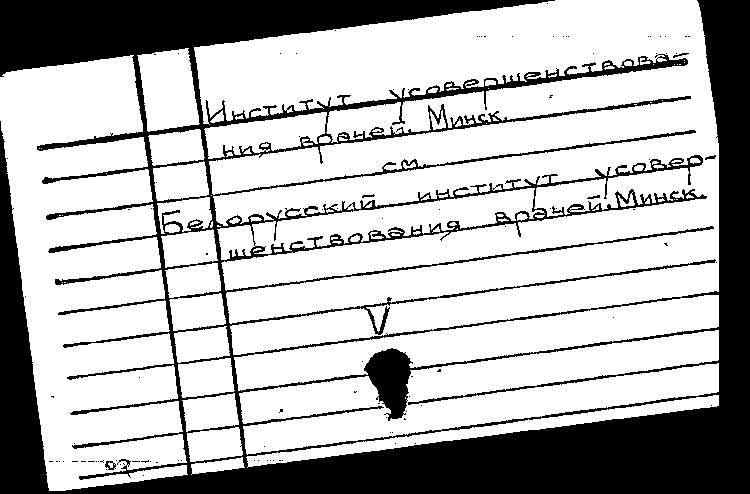 Институт усовершенствова-
ния врачей. Минск.
см.
Белорусский институт усовер-
шенствования врачей. Минск.
V